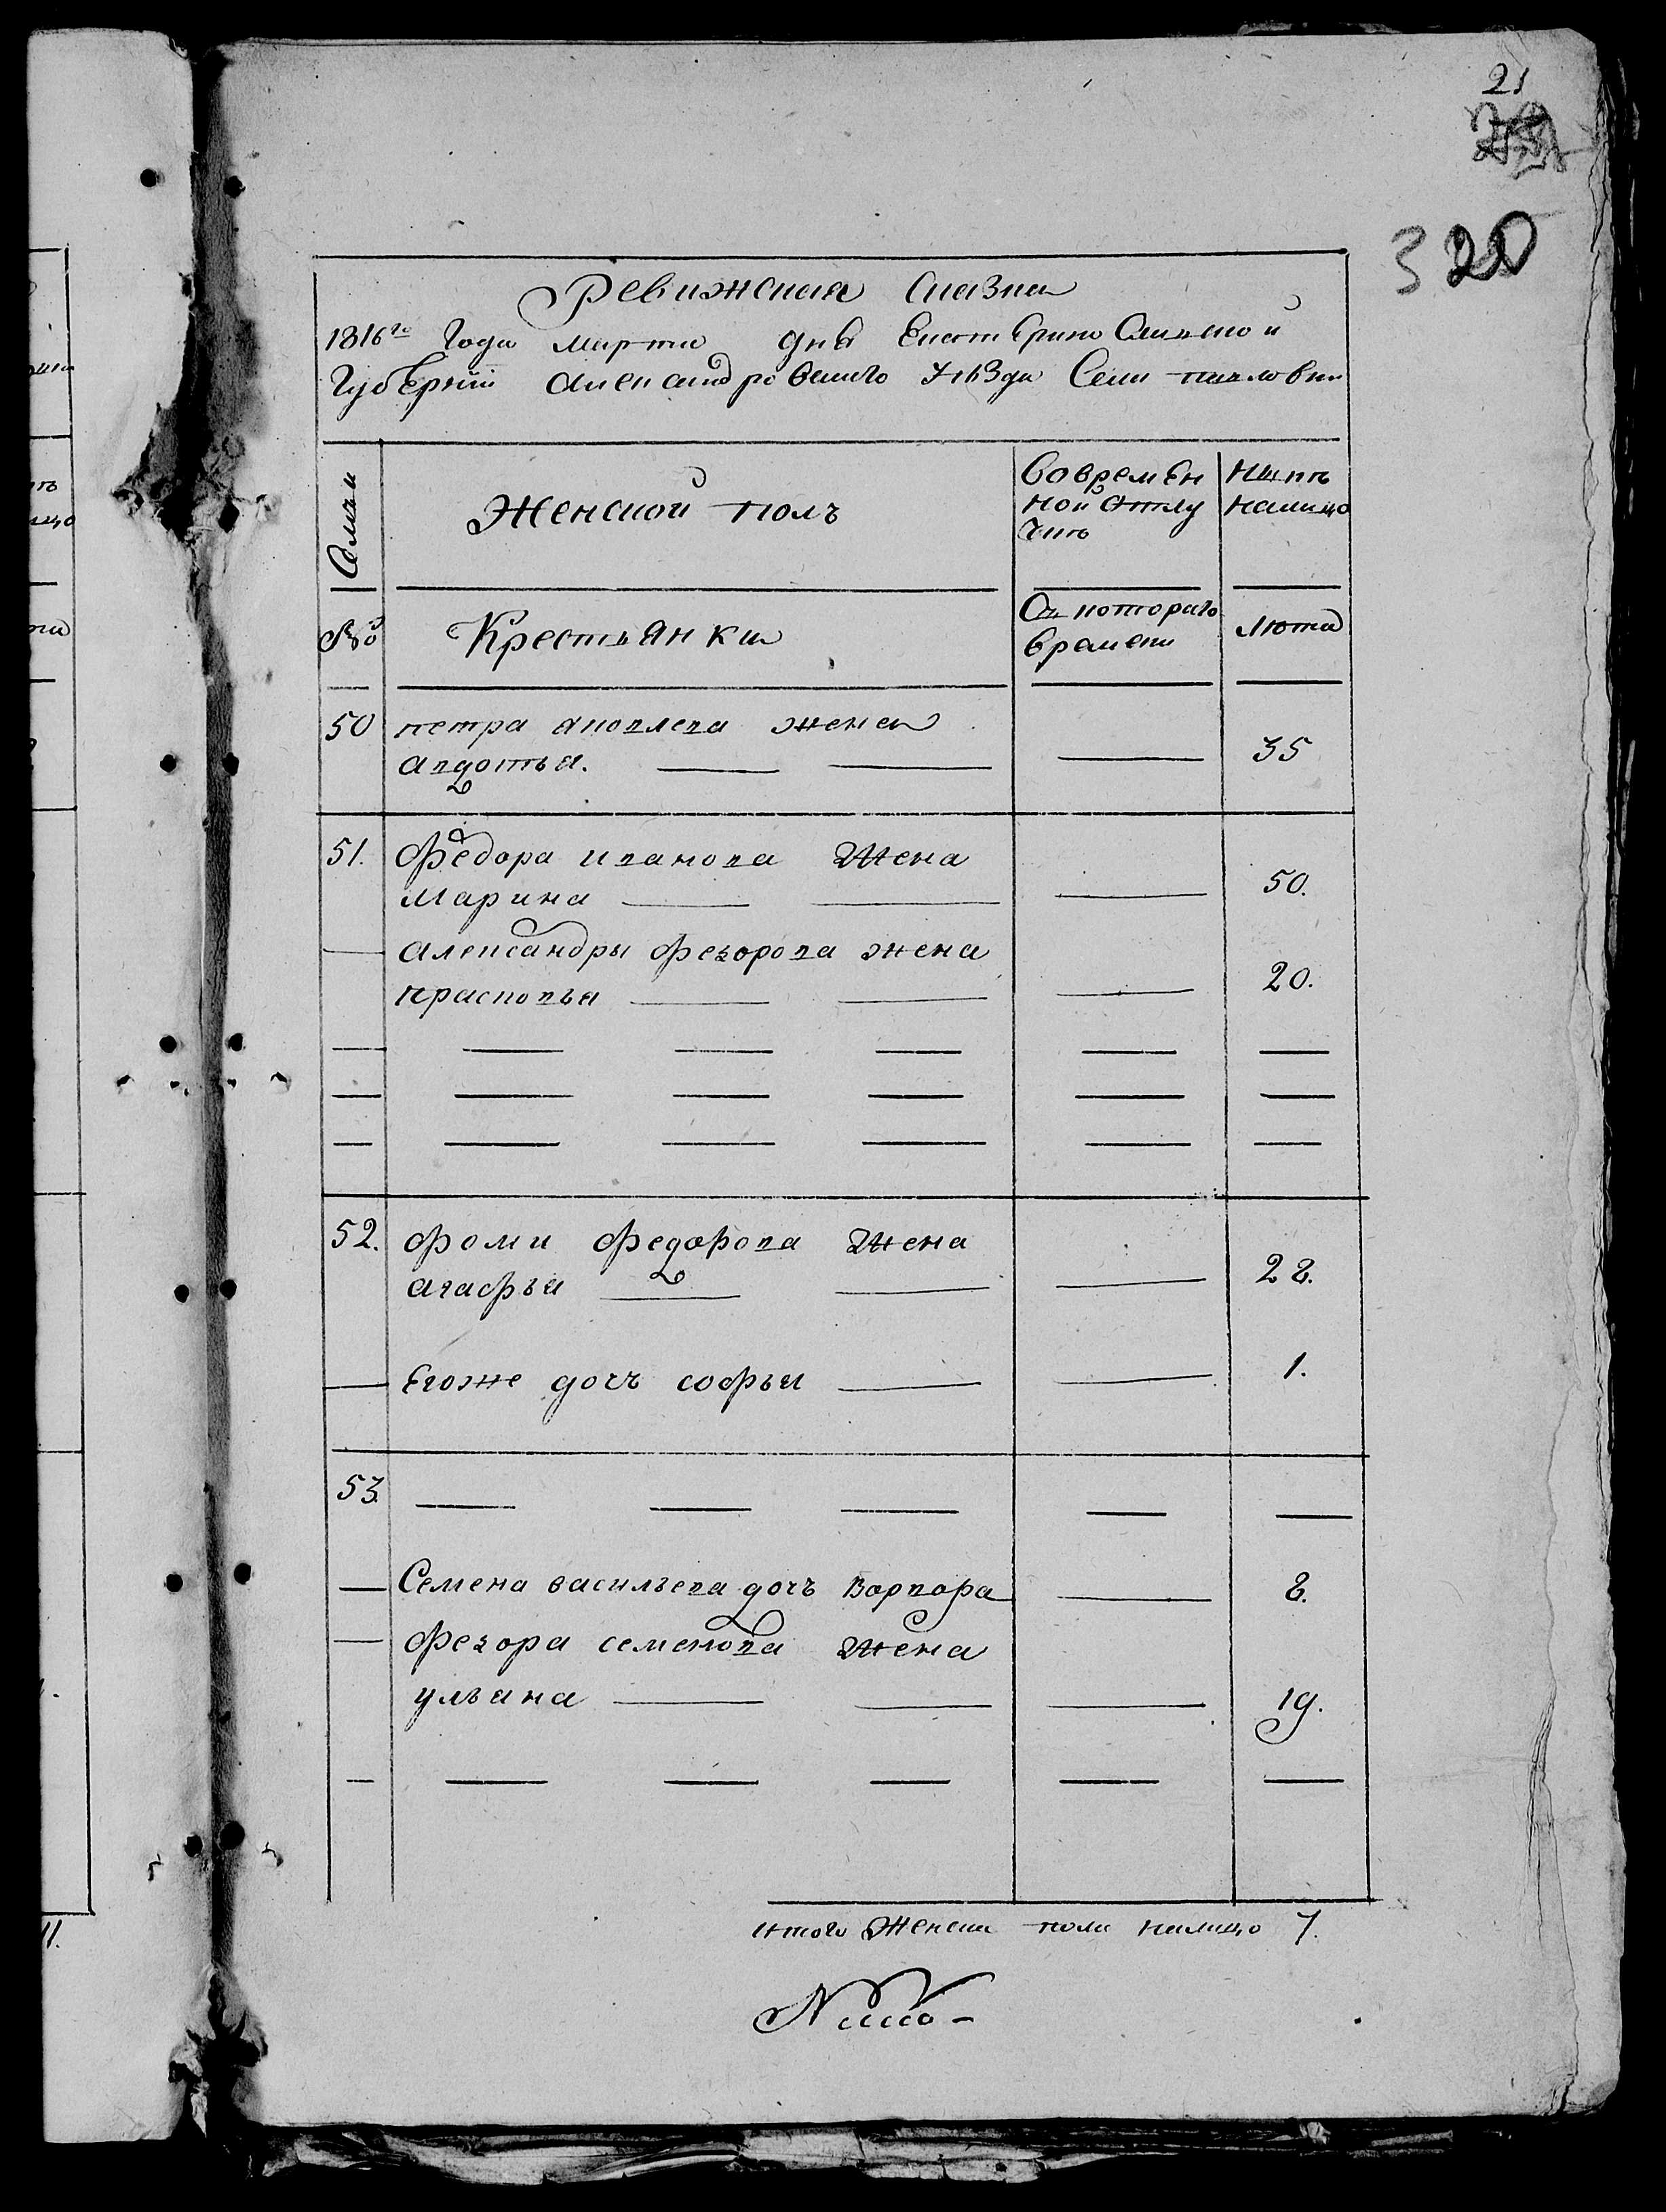 21
320
Ревижская сказка
1816го Года марта дня Екатерино Славской
Губернии Александровскаго Уезда Села павловки
Семьи
Женской полъ
Во времѣн
ной Отлу
чкѣ
Нынѣ
налицо
№
Крестьянки
Съ котораго
времени
Лѣта
50 петра яковлева жена
авдотья. 35
51. Федора иванова жена
марина 50.
александры федорова жена
прасковья 20.
52. фоми федорова жена
агафья 28.
Егоже дочъ софья 1.
53.
Семена васильева дочъ варвара 8.
федора семенова жена
ульяна 19.
итого Женска пола налицо 7.
11.